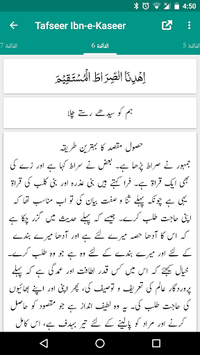 4:50
Tafseer Ibn-e-Kaseer
الفاتحة 6
اِهْدِنَا الصِّرَاطَ الْمُسْتَقِيْمَ
ہم کو سیدھے رستے چلا
حصول مقصد کا بہترین طریقہ
جمہور نے صراط پڑھا ہے۔ بعض نے سراط کہا ہے اور زے کی
بھی ایک قراۃ ہے۔ فرا کہتے ہیں بنی عذرہ اور بنی کلب کی قراۃ
یہی ہے چونکہ پہلے ثنا و صفت بیان کی تو اب مناسب تھا کہ
اپنی حاجت طلب کرے۔ جیسے کہ پہلے حدیث میں گزر چکا ہے
کہ اس کا آدھا حصہ میرے لئے ہے اور آدھا میرے بندے
کے لئے اور میرے بندے کے لئے وہ ہے جو وہ طلب کرے۔
خیال کیجئے کہ اس میں کس قدر لطافت اور عمدگی ہے کہ پہلے
پروردگار عالم کی تعریف و توصیف کی، پھر اپنی اور اپنے
بھائیوں کی حاجت طلب کی۔ یہ وہ لطیف انداز ہے جو مقصود کو حاصل
کرنے اور مراد کو پالینے کے لئے تیر بہدف ہے، اس کامل